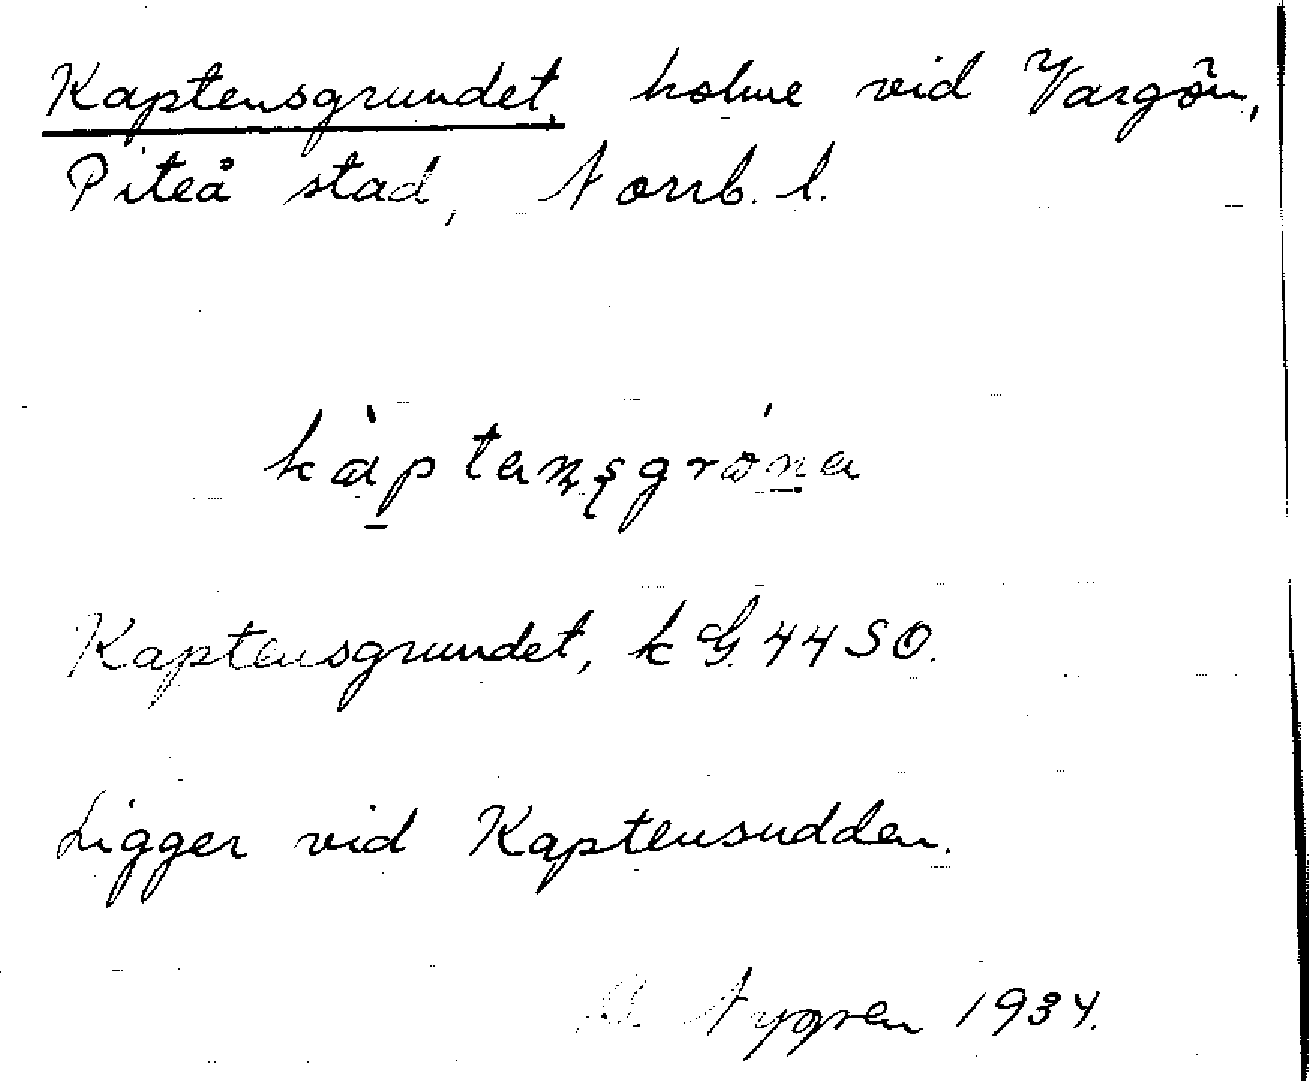 Kaptensgrundet, holme vid Vargön,
Piteå stad, Norrb. l.
Kaptensgrundet, k G. 4450.
Ligger vid Kaptensudden.
Nygren 1934.